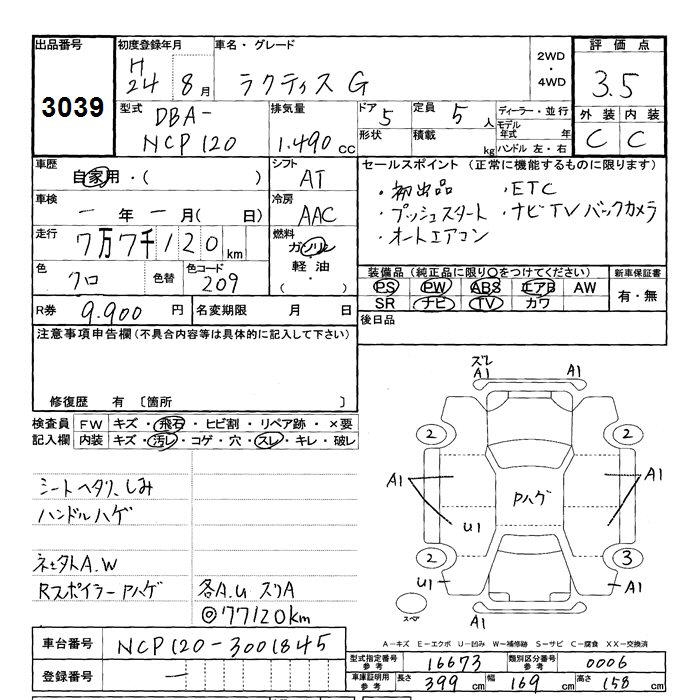 出品番号
3039
初度登録年月
H
24 8月
車名・グレード
ラクティス G
2WD
・
4WD
評価点
3.5
外装 内装
C C
型式
DBA-
NCP120
排気量
1.490 CC
ドア 5
定員 5 人
形状
積載 kg
ディーラー・並行
モデル年式 年
ハンドル 左・右
車歴
自家用・( )
シフト
AT
車検
ー 年 ー 月( 日)
冷房
AAC
走行
7万7千120km
燃料
ガソリン
軽油
・( )
色
クロ
色替
色コード
209
R券
9.900 円
名変期限 月 日
セールスポイント (正常に機能するものに限ります)
・初出品 ・ETC
・プッシュスタート ・ナビTVバックカメラ
・オートエアコン
装備品 (純正品に限り○をつけてください)
新車保証書
PS PW ABS エアB AW
SR ナビ TV カワ
有・無
後日品
注意事項申告欄(不具合内容等は具体的に記入して下さい)
修復歴 有 〔箇所 〕
検査員
記入欄
FW キズ・飛石・ヒビ割・リペア跡・×要
内装 キズ・汚レ・コゲ・穴・スレ・キレ・破レ
シートヘタリ、しみ
ハンドルハゲ
Rスポイラー Pハゲ
各A.U スリA
◎77120km
ズレ
A1 A1
2 2
A1 A1
Pハゲ
U1
2 3
U1 A1
スペア
A1
A-キズ E-エクボ U-凹み W-補修跡 S-サビ C-腐食 XX-交換済
車台番号
NCP120-3001845
登録番号
ー
型式指定番号
参考
16673
類別区分番号
参考
0006
車庫証明用
参考
長さ 399 cm
幅 169 cm
高さ 158 cm